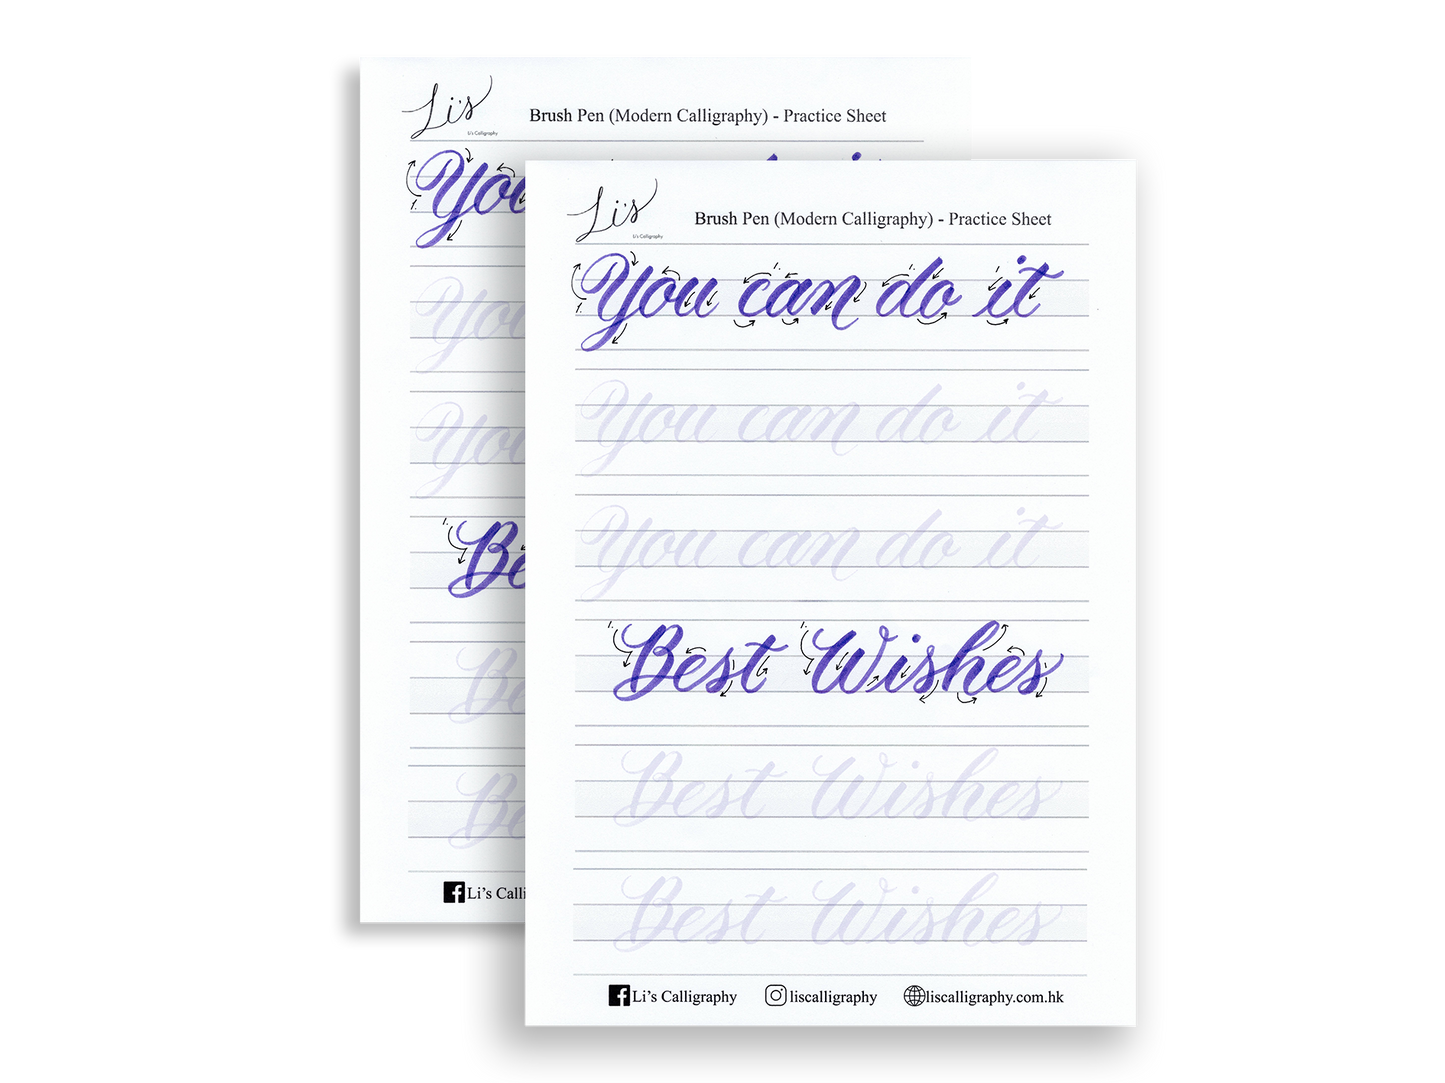 Li's
Li's Calligraphy
Brush Pen (Modern Calligraphy) - Practice Sheet
You
You
You
Be
Be
Be
Li's Calli
Li's
Li's Calligraphy
Brush Pen (Modern Calligraphy) - Practice Sheet
1.
1.
1.
You can do it
You can do it
You can do it
1.
1.
Best Wishes
Best Wishes
Best Wishes
Li's Calligraphy
liscalligraphy
liscalligraphy.com.hk